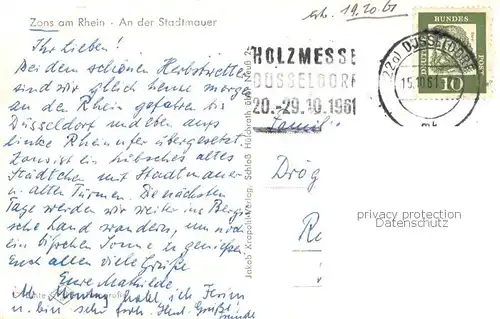 Zons am Rhein - An der Stadtmauer
erh. 19.10.61
Ihr Lieben!
Bei dem schönen Herbstwetter
sind wir gleich heute morgen
an den Rhein gefahren bis
Düsseldorf und eben aufs
linke Rheinufer übergesetzt.
Zons ist ein hübsches altes
Städtchen mit Stadtmauer
u. alten Türmen. Die nächsten
Tage werden wir weiter ins Bergi-
sche Land wandern, um noch
ein bißchen Sonne zu genießen.
Euch allen viele Grüße
Eure Mathilde.
Ab Montag habe ich Ferien
u. bin sehr froh. Herzl. Grüße
HOLZMESSE
DÜSSELDORF
20.-29.10.1961
(22a) DÜSSELDORF
15.10.61
mk
DEUTSCHE
BUNDES
POST
10
Familie
Drog
Re
Jakob Krapohl-Verlag, Schloß Hülchrath über Neuß 2-
privacy protection
Datenschutz